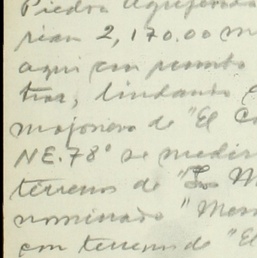 Piedra Agujerea
rian 2,170.00 m
aqui con rumbo
tras, lindando
mojonera de "El C
NE. 78° se medir
terrenos de "Los M
nominado "Mem
con terrenos de "El